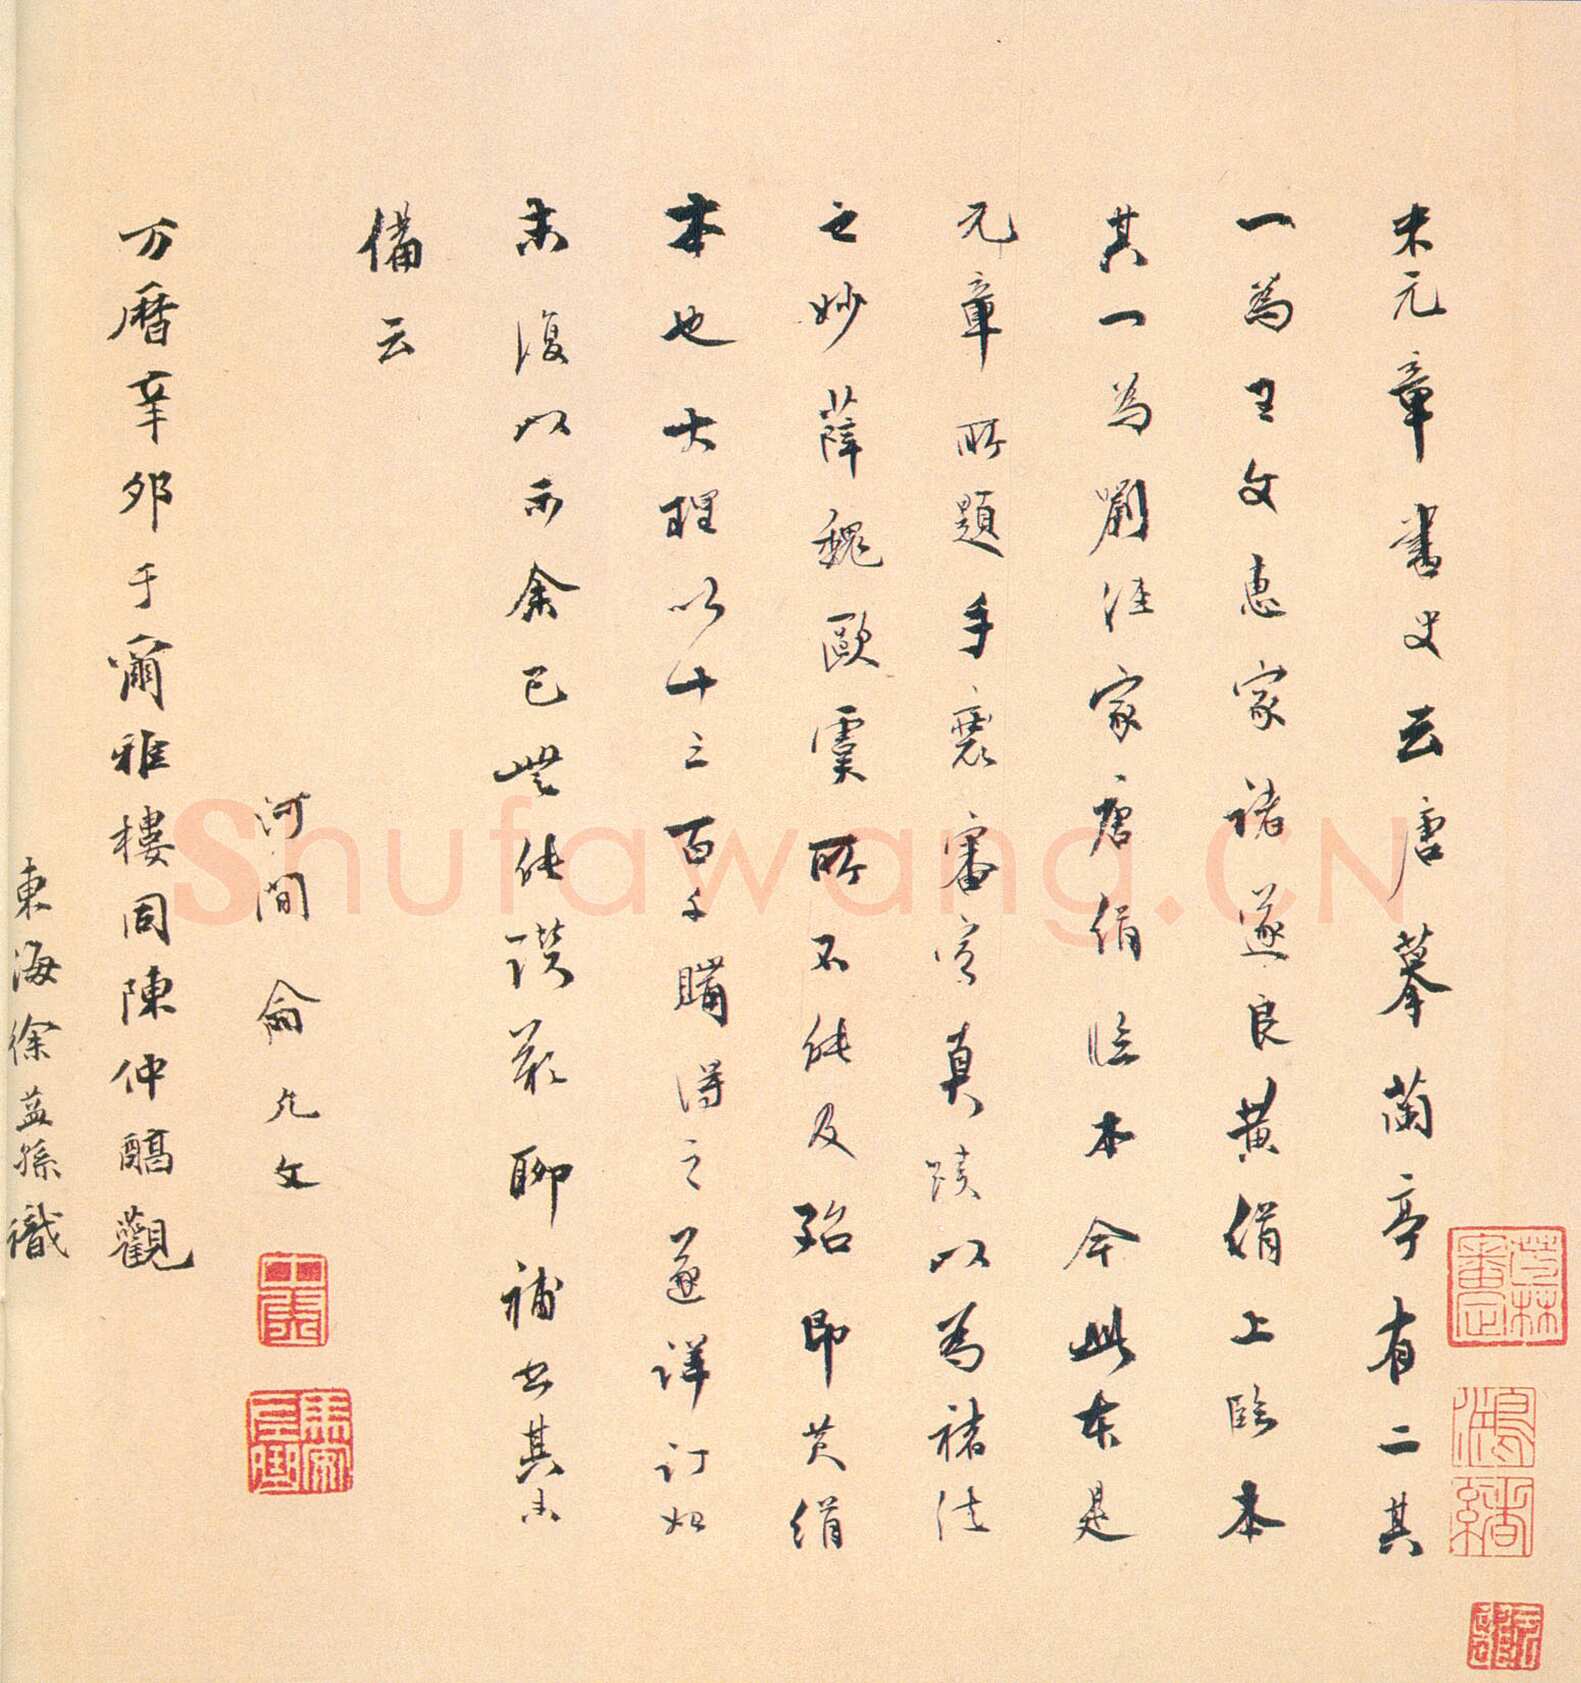 米元章書史云唐摹蘭亭有二其
一為王文惠家褚遂良黃絹上臨本
其一為劉涇家唐絹臨本今此本是
元章所題手裝審定真蹟以為褚法
之妙薛魏歐虞所不能及殆即黃絹
本也大理以十三百千購得之遂詳訂如
末復以示余已無能讚歎聊補書其未
備云
河間俞允文
万曆辛卯于爾雅樓同陳仲醇觀
東海徐益孫識
Shufawang.CN